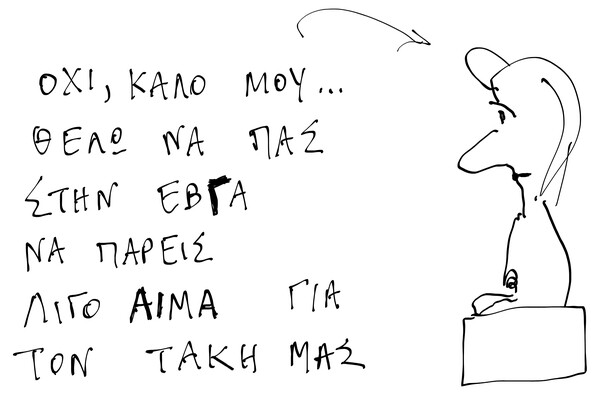 ΟΧΙ, ΚΑΛΟ ΜΟΥ...
ΘΕΛΩ ΝΑ ΠΑΣ
ΣΤΗΝ ΕΒΓΑ
ΝΑ ΠΑΡΕΙΣ
ΛΙΓΟ ΑΙΜΑ ΓΙΑ
ΤΟΝ ΤΑΚΗ ΜΑΣ